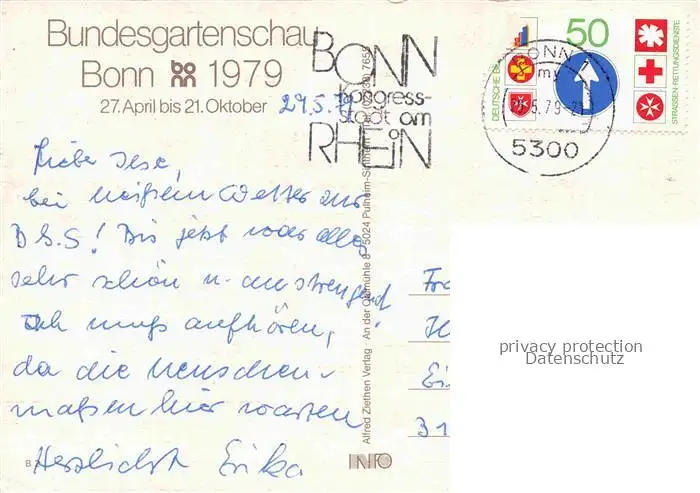 Bundesgartenschau
Bonn 1979
27. April bis 21. Oktober 29.5.79
BONN
Kongress-
stadt am
RHEIN
50
DEUTSCHE BU
STRASSEN-RETTUNGSDIENSTE
BONN 1
my
5.79-21
5300
Liebe Ilse,
bei heißem Wetter zur
BGS! Bis jetzt war alles
sehr schön u. anstrengend!
Ich muß aufhören,
da die Menschen-
maßen hier warten
Herzlichst Erika
Alfred Ziethen Verlag · An der Ölmühle 8 · 5024 Pulheim-Sinthern
INFO
Fra
Ei
31
privacy protection
Datenschutz